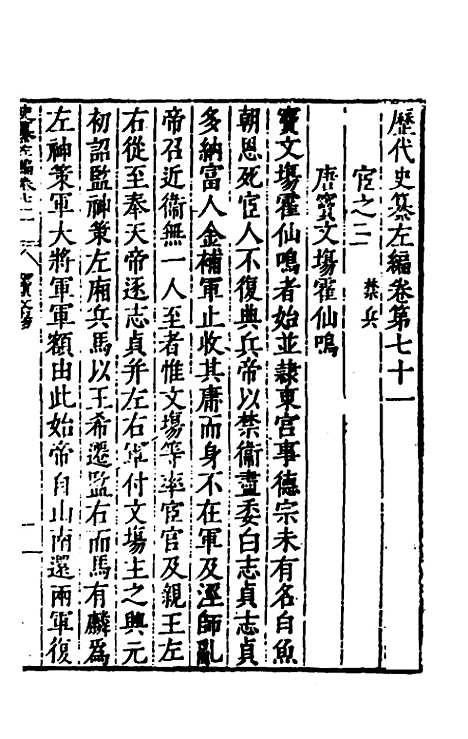 歷代史纂左編卷第七十一
宦之二 禁兵
唐竇文場霍仙鳴
竇文場霍仙鳴者始並隸東宮事德宗未有名自魚
朝恩死宦人不復典兵帝以禁衛盡委白志貞志貞
多納富人金補軍止收其庸而身不在軍及涇師亂
帝召近衛無一人至者惟文場等率宦官及親王左
右從至奉天帝逐志貞并左右軍付文場主之興元
初詔監神策左廂兵馬以王希遷監右而馬有麟爲
左神策軍大將軍軍額由此始帝自山南還兩軍復
史纂左編卷七十一